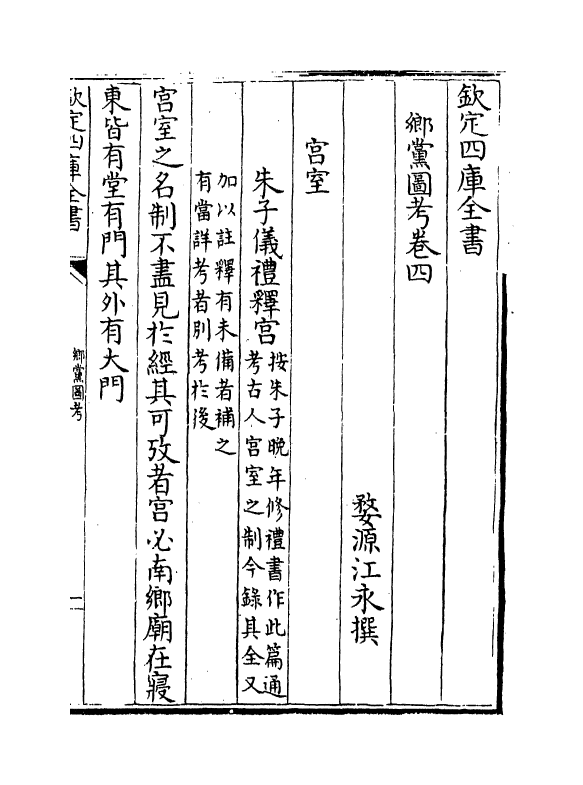 欽定四庫全書
鄉黨圖考卷四
婺源江永撰
宫室
朱子儀禮釋宫
按朱子晩年修禮書作此篇通
考古人宫室之制今錄其全又
加以註釋有未備者補之
有當詳考者別考於後
宫室之名制不盡見於經其可攷者宫必南鄉廟在寢
東皆有堂有門其外有大門
欽定四庫全書
鄉黨圖考
一